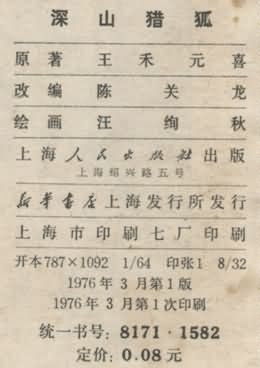 深山猎狐
原著 王禾元喜
改编 陈关龙
绘画 汪绚秋
上海人民出版社出版
上海绍兴路五号
新华书店上海发行所发行
上海市印刷七厂印刷
开本787×1092 1/64 印张1 8/32
1976年3月第1版
1976年3月第1次印刷
统一书号：8171·1582
定价：0.08元